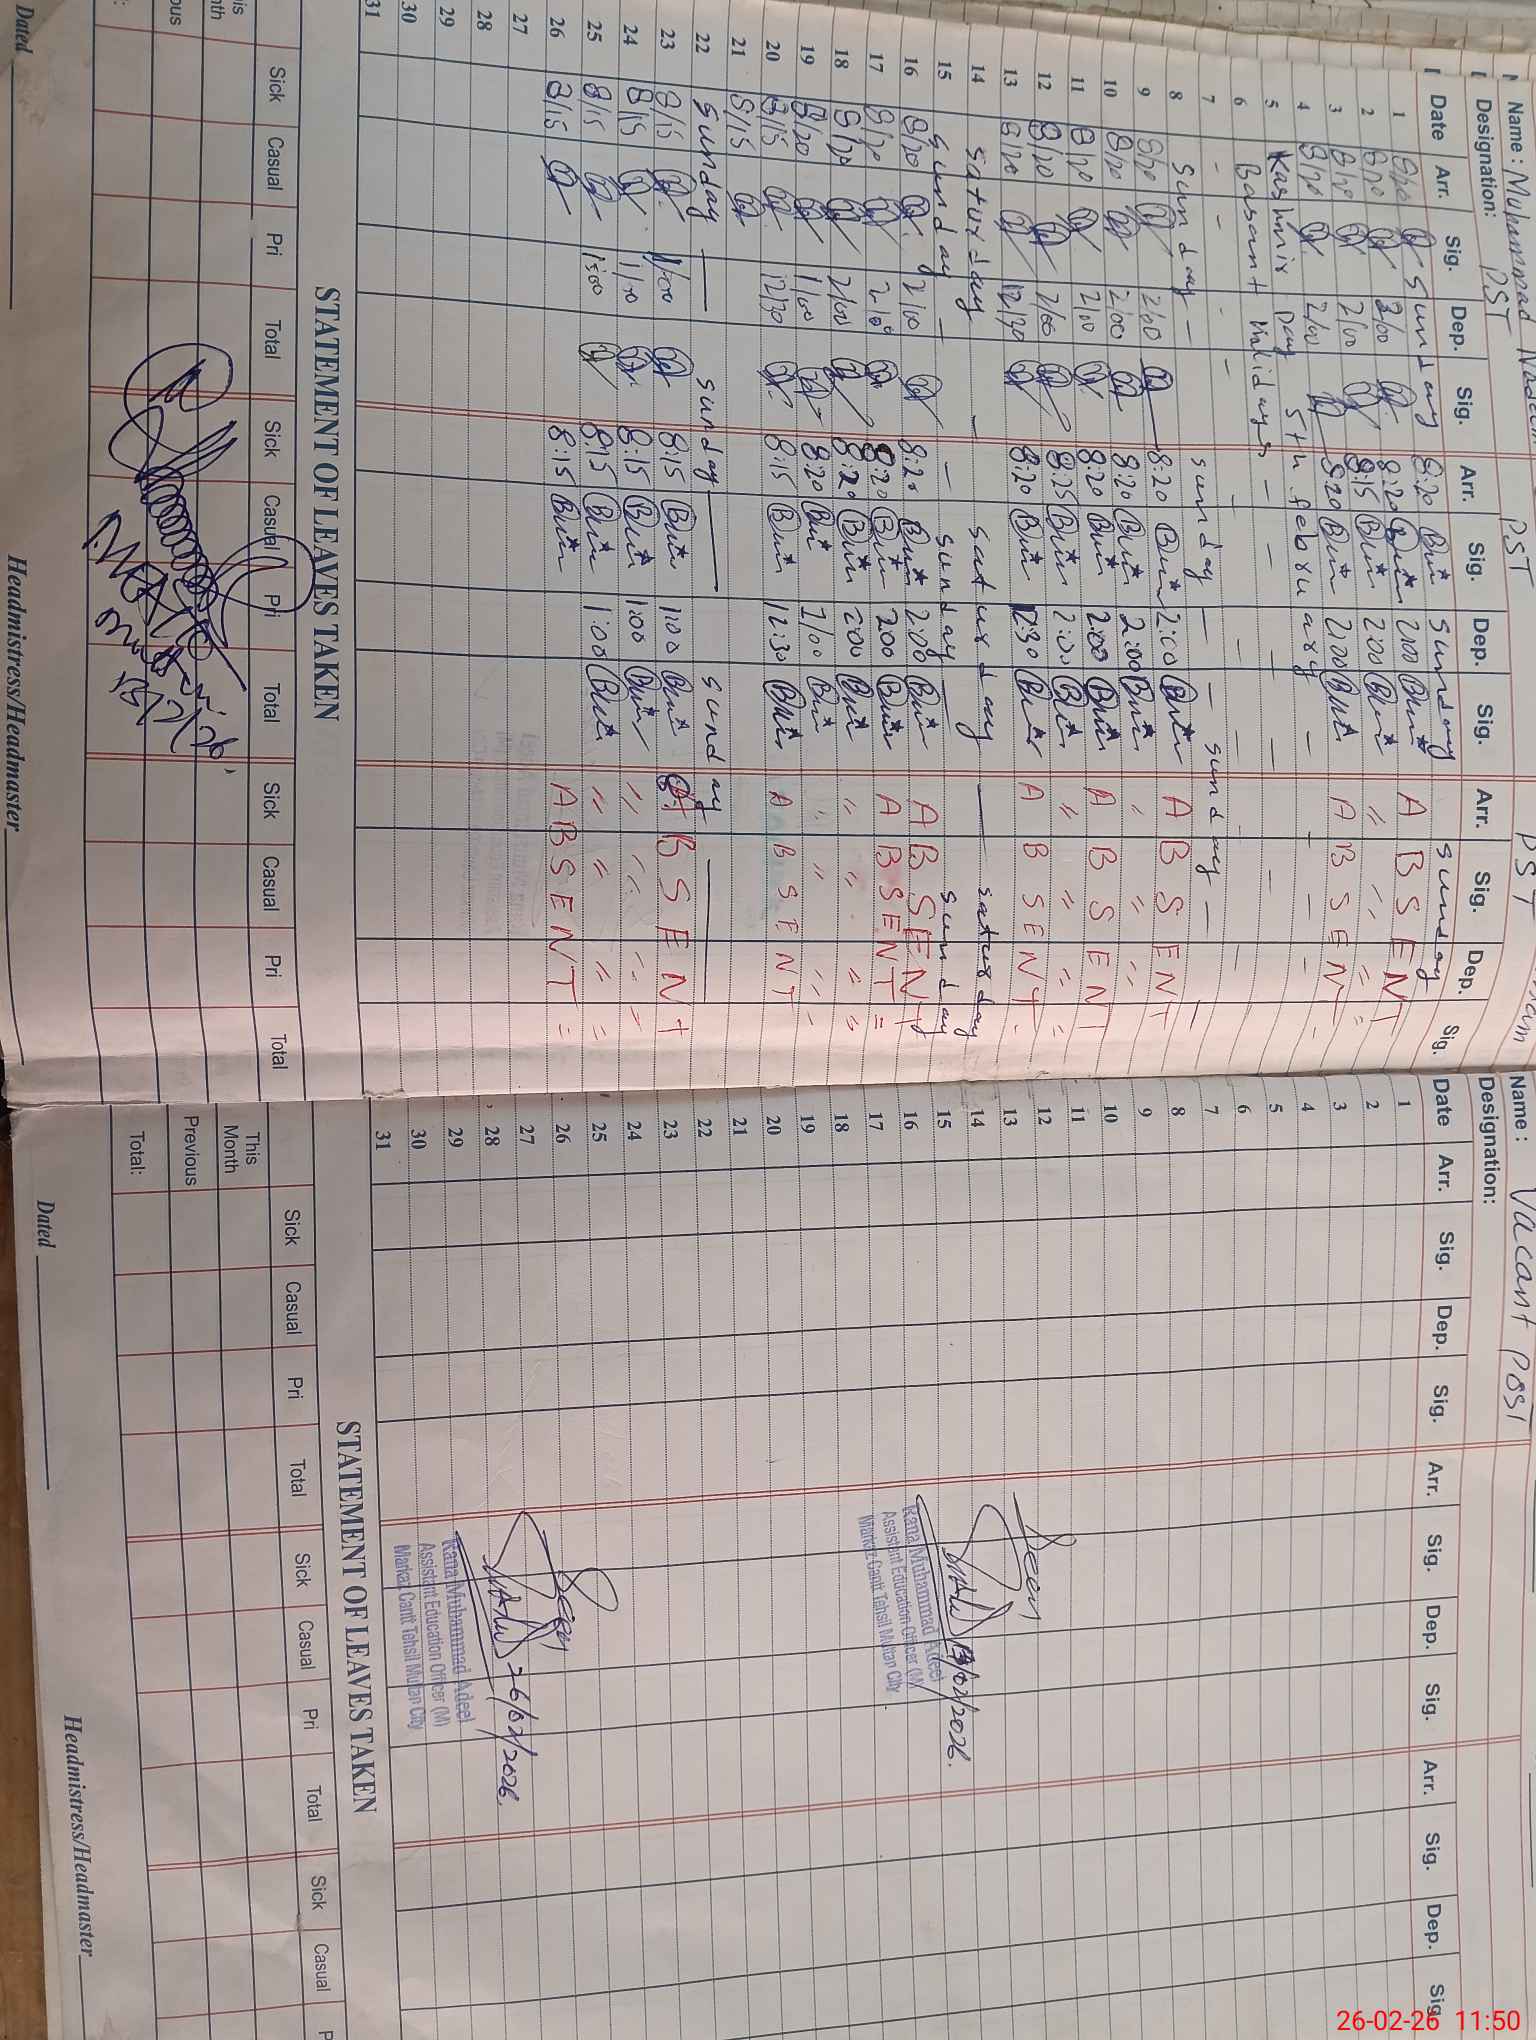 Name : Muhammad Nadeem PST PST
Designation: PST
Date Arr. Sig. Dep. Sig. Arr. Sig. Dep. Sig. Arr. Sig. Dep. Sig.
1 Sunday Sunday Sunday
1 8/20 8:20 A B S E N T
2 8/20 2/00 8:20 2:00 " " "
3 8/20 2/00 8:15 2:00 A B S E N T
4 8/20 2/00 8:20 2:00
5 Kashmir Day 5th february
6 Basant Holidays
7
8 Sunday Sunday Sunday
9 8/20 2/00 8:20 2:00 A B S E N T
10 8/20 2/00 8:20 2:00 " "
11 8/20 2/00 8:20 2:00 A B S E N T
12 8/20 2/00 8:25 2:00 " " "
13 8/20 12/30 8:20 12:30 A B S E N T
14 Saturday Saturday Saturday
15 Sunday Sunday Sunday
16 8/20 2/00 8:20 2:00 A B S E N T
17 8/20 2/00 8:20 2:00 A B S E N T =
18 8/20 2/00 8:20 2:00 " " "
19 8/20 1/00 8:20 1/00 " " "
20 8/15 12/30 8:15 12:30 A B S E N T
21 8/15
22 Sunday Sunday Sunday
23 8/15 1/00 8:15 1:00 A B S E N T
24 8/15 1/00 8:15 1:00 " " "
25 8/15 1:00 8:15 1:00 " " " =
26 8/15 8:15 A B S E N T =
27
28
29
30
31
STATEMENT OF LEAVES TAKEN
Sick Casual Pri Total Sick Casual Pri Total Sick Casual Pri Total
Dated Headmistress/Headmaster
Name : Vacant Post
Designation:
Date Arr. Sig. Dep. Sig. Arr. Sig. Dep. Sig. Arr. Sig. Dep. Sig.
1
2
3
4
5
6
7
8
9
10
11
12
13
14
15
16
17
18
19
20
21
22
23
24
25
26
27
28
29
30
31
13/02/2026.
Rana Muhammad Adeel
Assistant Education Officer (M)
Markaz Cantt Tehsil Multan City
26/02/2026.
Rana Muhammad Adeel
Assistant Education Officer (M)
Markaz Cantt Tehsil Multan City
STATEMENT OF LEAVES TAKEN
Sick Casual Pri Total Sick Casual Pri Total Sick Casual P
This Month
Previous
Total:
Dated Headmistress/Headmaster
26-02-26 11:50